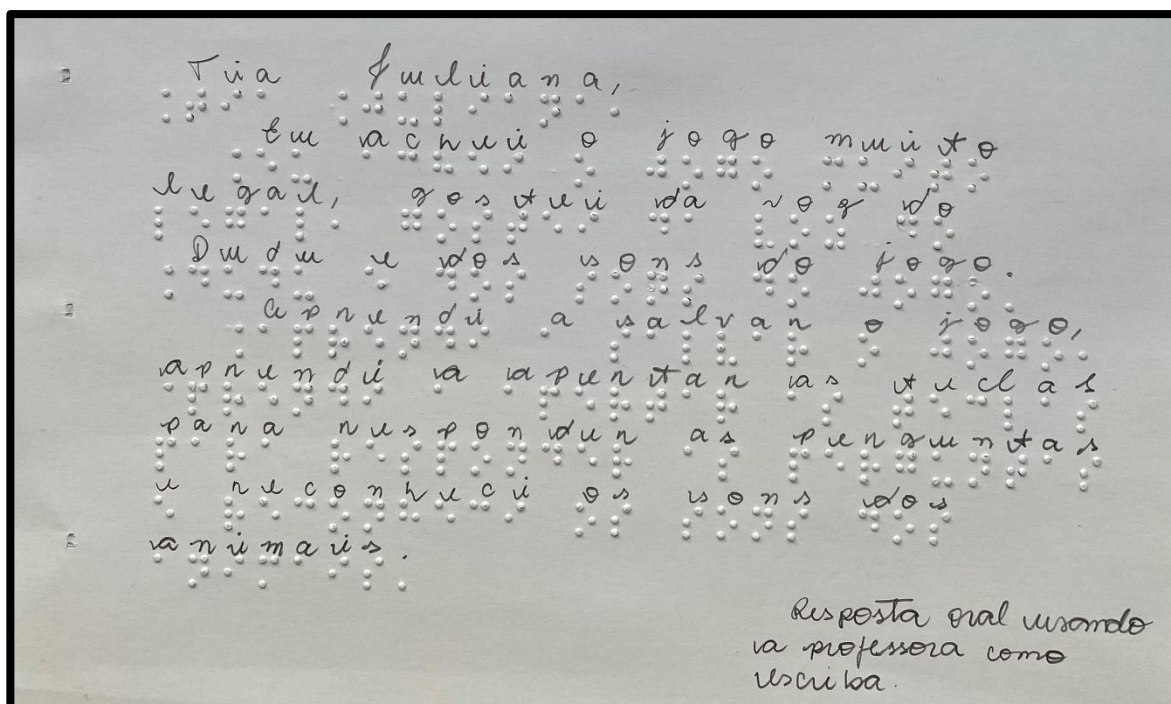 Tia Juliana,
Eu achei o jogo muito
legal, gostei da voz do
Dudu e dos sons do jogo.
Aprendi a salvar o jogo,
aprendi a apertar as teclas
para responder as perguntas
e reconheci os sons dos
animais.
Resposta oral usando
a professora como
escriba.